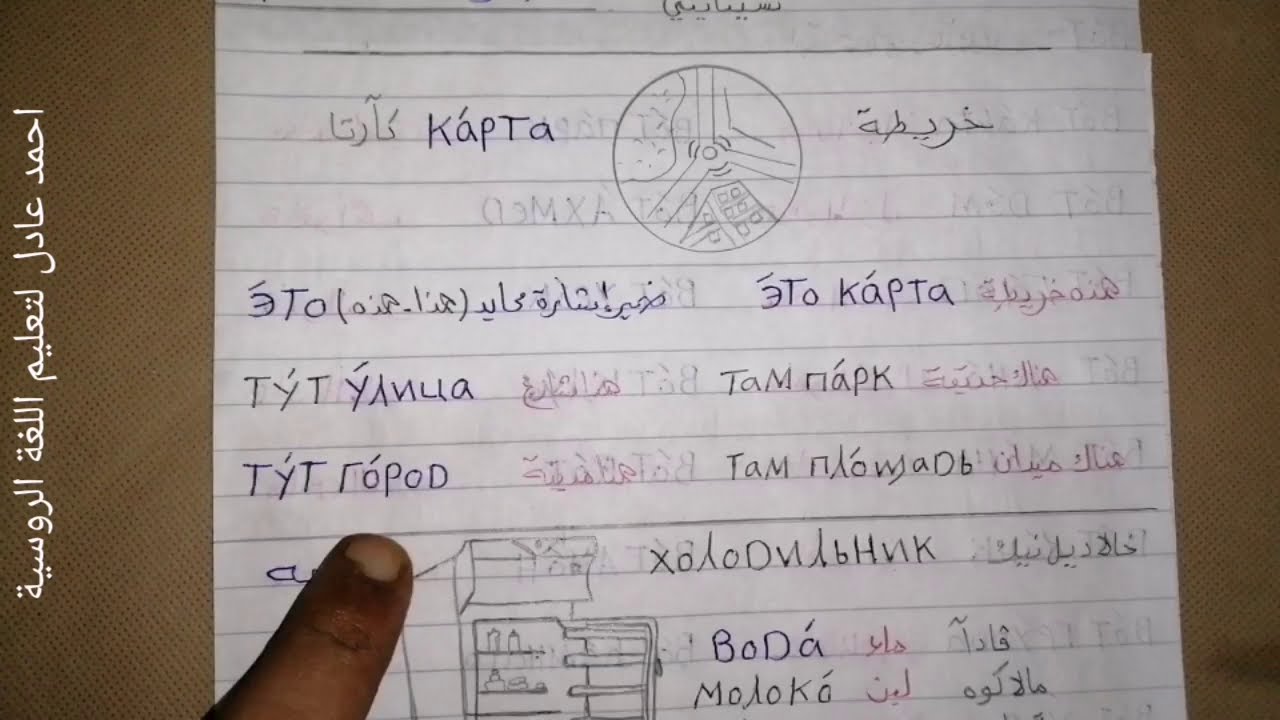 احمد عادل لتعليم اللغة الروسية
خريطة КА́РТА كآرتا
Э́ТО (هذا-هذه) ضمير إشارة محايد Э́ТО КА́РТА هذه خريطة
ТУ́Т У́ЛИЦА هنا الشارع ТАМ ПА́РК هناك حديقة
ТУ́Т ГО́РОД ТАМ ПЛО́ЩАДЬ هناك ميدان
ХОЛОДИЛЬНИК خالاديل نيك
ВОДА́ ماء ڤادآ
МОЛОКО́ لبن مالاكوه